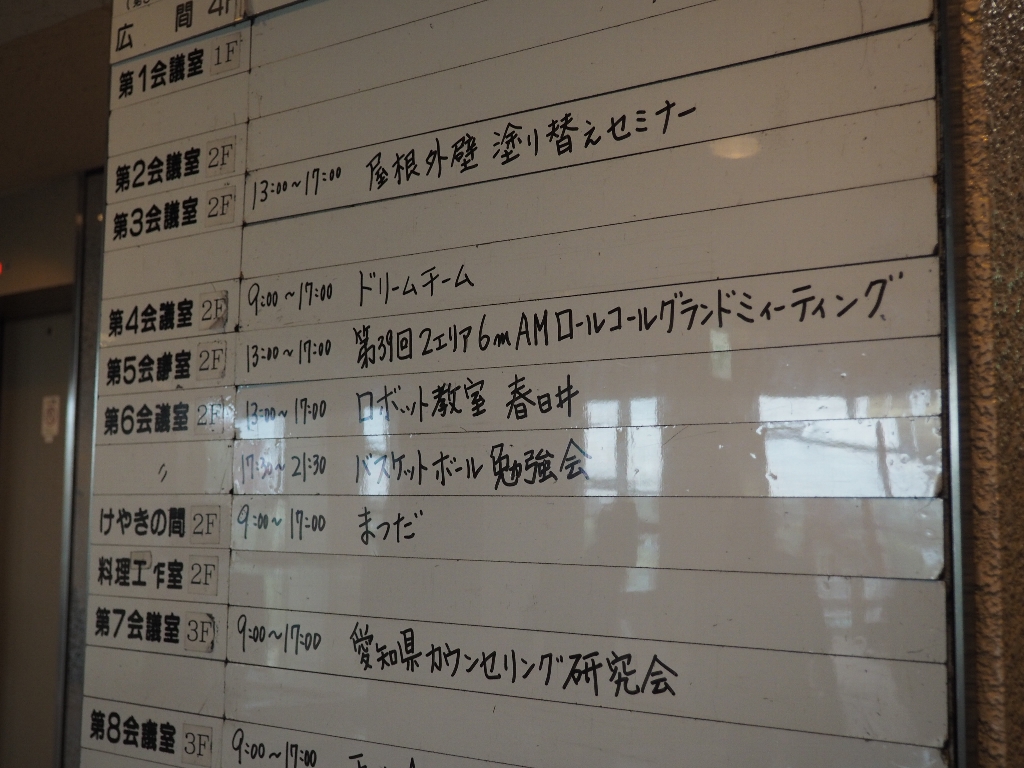 広 間 4F
第1会議室 1F
第2会議室 2F 13:00~17:00 屋根外壁 塗り替えセミナー
第3会議室 2F
第4会議室 2F 9:00~17:00 ドリームチーム
第5会議室 2F 13:00~17:00 第39回2エリア6mAMロールコールグランドミィーティング
第6会議室 2F 13:00~17:00 ロボット教室 春日井
〃 17:30~21:30 バスケットボール勉強会
けやきの間 2F 9:00~17:00 まつだ
料理工作室 2F
第7会議室 3F 9:00~17:00 愛知県カウンセリング研究会
第8会議室 3F 9:00~17:00